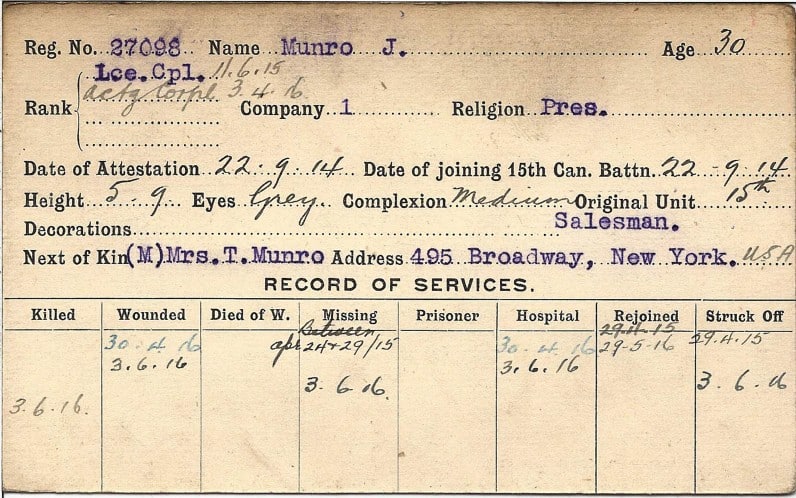 Reg. No. 27098 Name Munro J. Age 30
Lce.Cpl. 11.6.15
Rank actg Corpl 3.4.16 Company 1 Religion Pres.
Date of Attestation 22.9.14 Date of joining 15th Can. Battn. 22-9-14
Height 5.9 Eyes Grey. Complexion Medium Original Unit 15th
Decorations Salesman.
Next of Kin (M) Mrs.T.Munro Address 495 Broadway, New York. USA
RECORD OF SERVICES.
Killed Wounded Died of W. Missing Prisoner Hospital Rejoined Struck Off
Between 29.4.15
30.4.16 apr 24+29/15 30.4.16 29-5-16 29.4.15
3.6.16 3.6.16
3.6.16. 3.6.16
3.6.16.